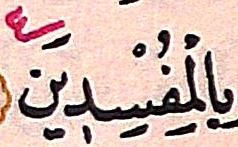 بِالْمُفْسِدِينَ